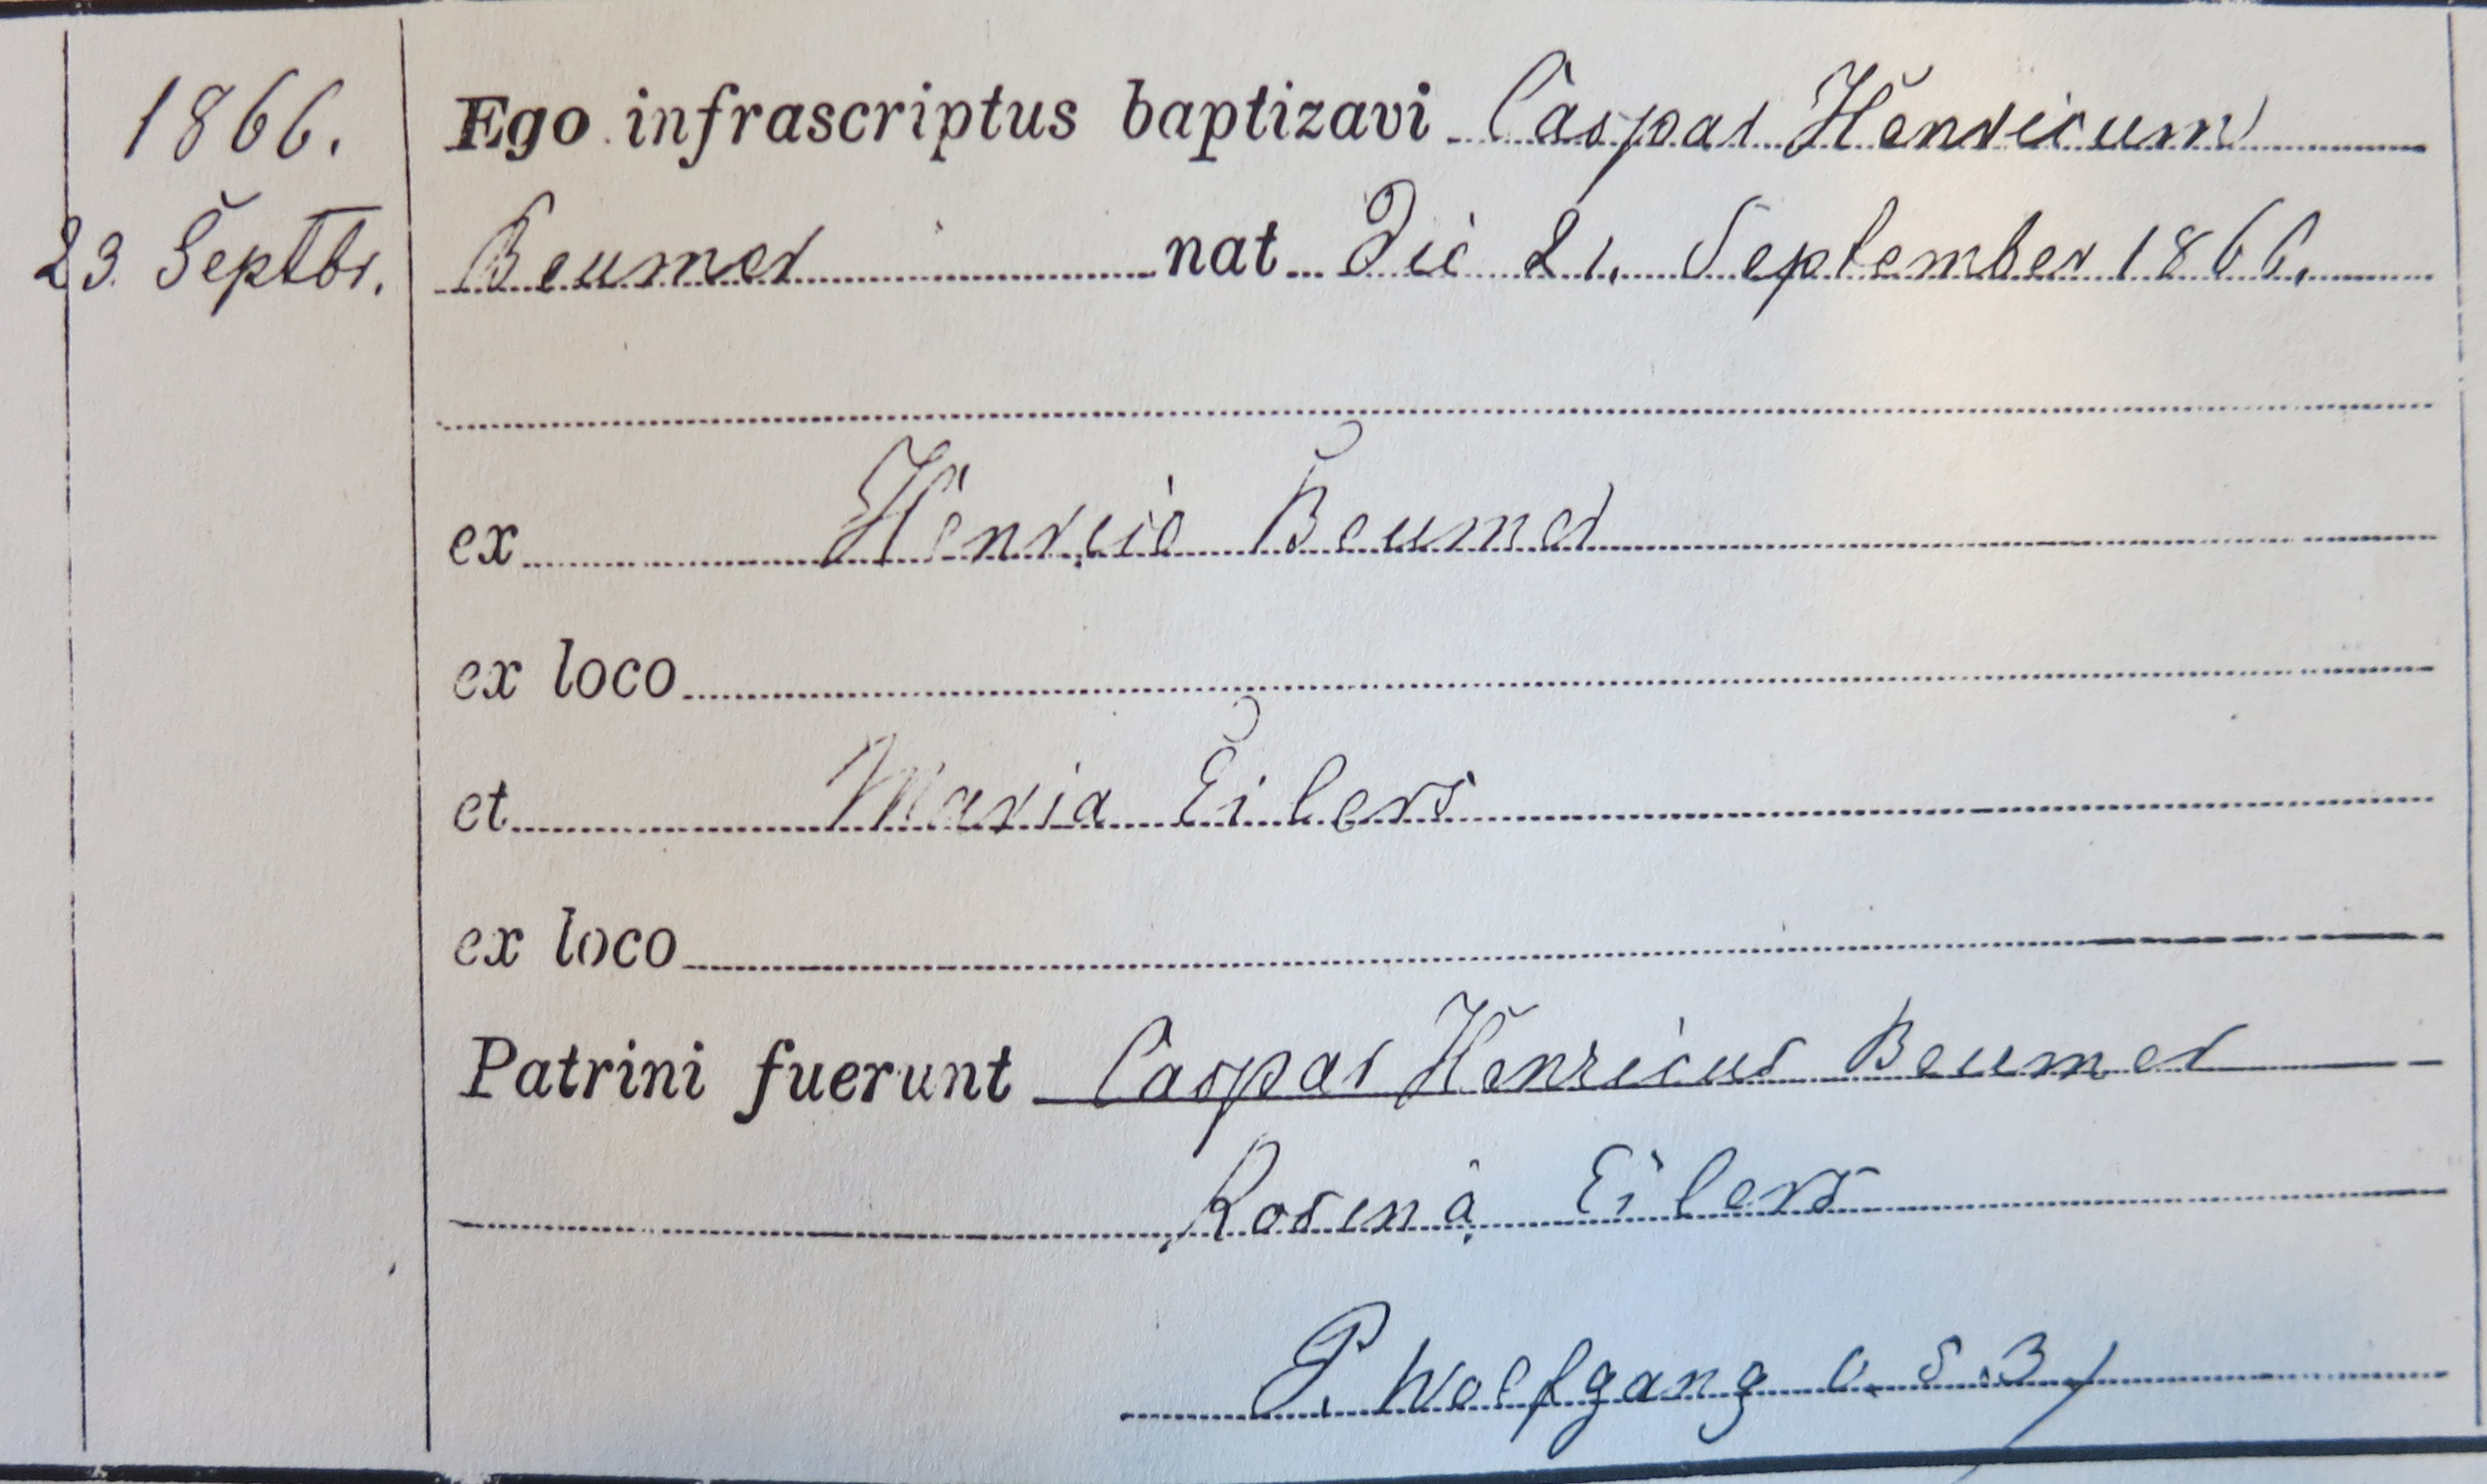 1866.
23. Septbr.
Ego infrascriptus baptizavi Caspar Henricum
Beumer nat Die 21. September 1866.
ex Henrico Beumer
ex loco
et Maria Eilers
ex loco
Patrini fuerunt Caspar Henricus Beumer
Rosina Eilers
P. Wolfgang O. S. B